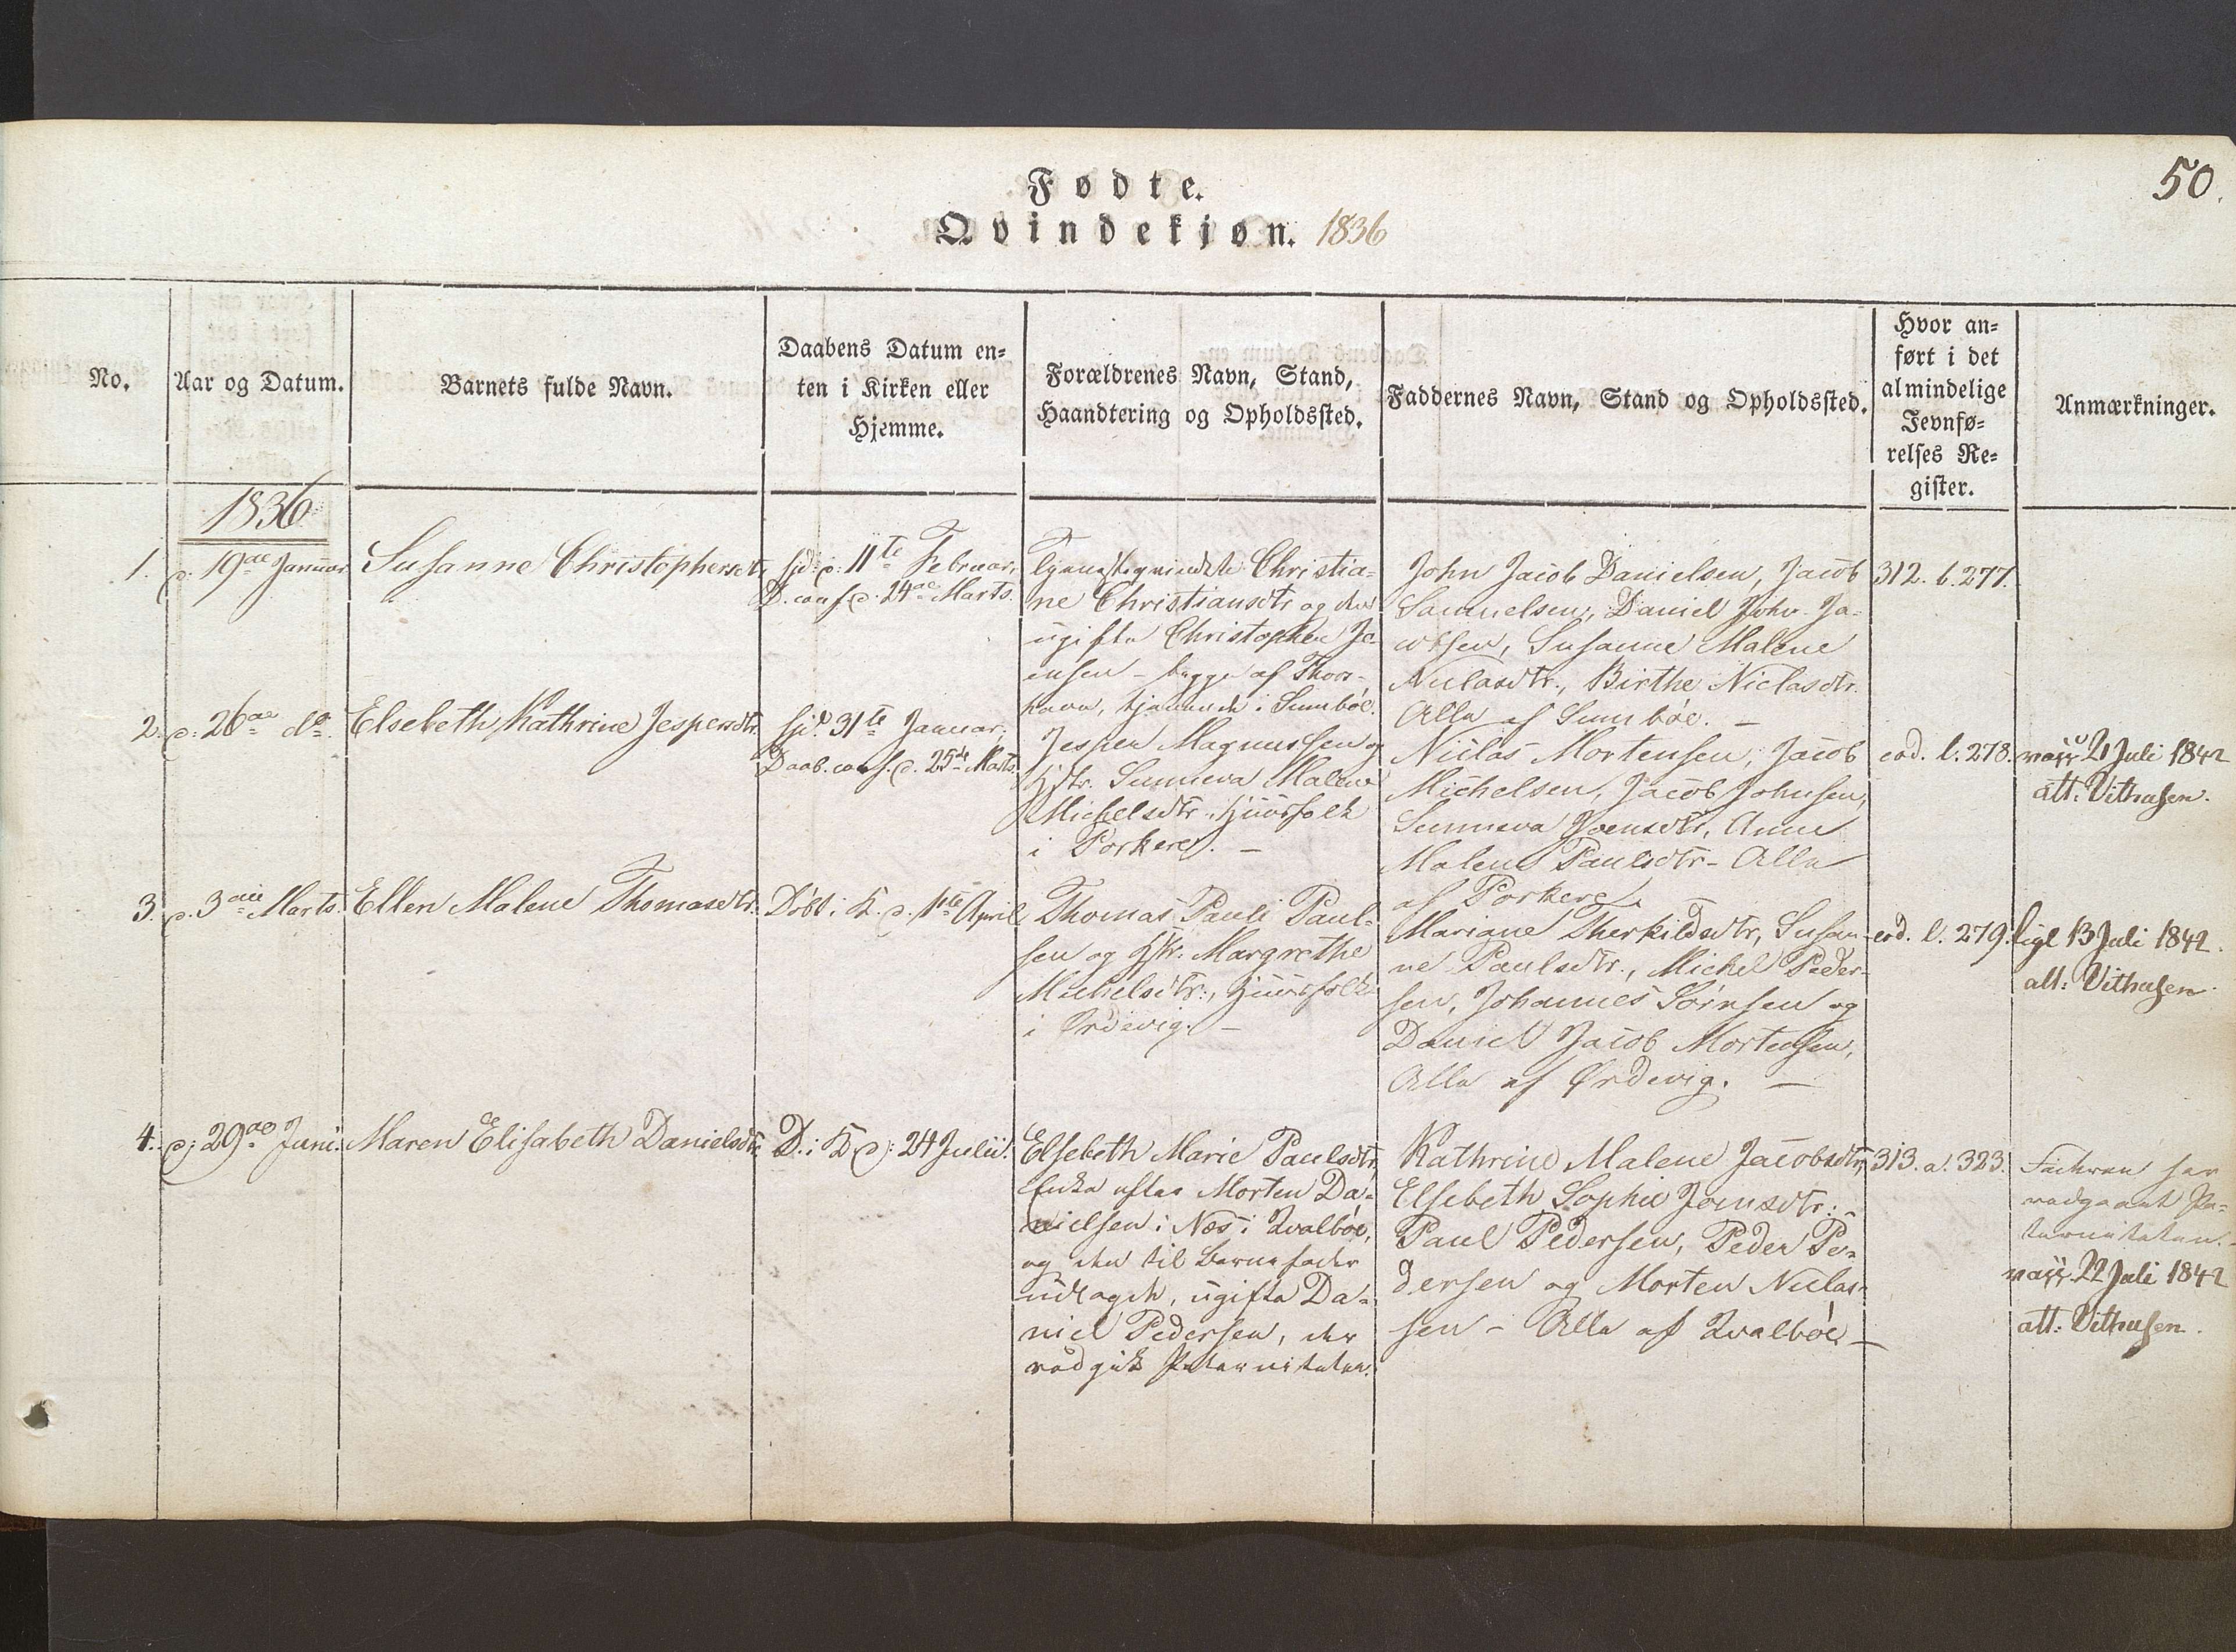 50.
Fødte.
Qvindekjøn. 1836
No.
Aar og Datum.
Barnets fulde Navn.
Daabens Datum en=
ten i Kirken eller
Hjemme.
Forældrenes Navn, Stand,
Haandtering og Opholdssted.
Faddernes Navn, Stand og Opholdssted.
Hvor an=
ført i det
almindelige
Jevnfø=
relses Re=
gister.
Anmærkninger.
1836
1.
d. 19de Januar
Susanne Christophersdtr.
hjd. d: 11te Februar,
D. conf. d. 24de Marts.
Christia=
ne Christiansdtr og den
ugifte Christopher Jo=
ensen - begge af Thors=
havn, tjenende i Sumbøe.
John Jacob Danielsen, Jacob
Samuelsen, Daniel John Ja=
cobsen, Susanne Malene
Niclasdtr., Birthe Niclasdtr.
Alle af Sumbøe. -
312. b. 277.
2.
d: 26de do.
Elsebeth Kathrine Jespersdtr.
hjd. 31te Januar,
Daab. conf. d. 25de Marts.
Jesper Magnussen og
Hstr. Sunneva Malene
Michelsdtr. Huusfolk
i Porkere. -
Niclas Mortensen, Jacob
Michelsen, Jacob Johnsen,
Sunneva Joensdtr, Anne
Malene Paulsdtr - Alle
af Porkere.
eod. l. 278.
vacc 21 Juli 1842
att: Vithusen.
3.
d. 3die Marts.
Ellen Malene Thomasdtr.
Døbt i K. d. 1ste April
Thomas Pauli Paul=
sen og Hstr. Margrethe
Michelsdtr., Huusfolk
i Ørdevig. -
Mariane Therkildsdtr, Susan=
ne Paulsdtr., Michel Peder=
sen, Johannes Sørnsen og
Daniel Jacob Mortensen,
Alle af Ørdevig. -
eod. l. 279.
ligl 13 Juli 1842.
att: Vithusen.
4.
d; 29de Juni.
Maren Elisabeth Danielsdtr.
D. i K d: 24 Julii.
Elsebeth Marie Paulsdtr,
Enke efter Morten Da=
nielsen i Næs i Qvalbøe,
og den til Barnefader
udlagde, ugifte Da=
niel Pedersen, der
vedgik Paterniteten.
Kathrine Malene Jacobsdtr,
Elsebeth Sophie Joensdtr. -
Paul Pedersen, Peder Pe=
dersen og Morten Niclas=
sen - Alle af Qvalbøe -
313. a. 323.
Faderen har
vedgaaet Pa=
terniteten. -
vacc. 22 Juli 1842
att: Vithusen.